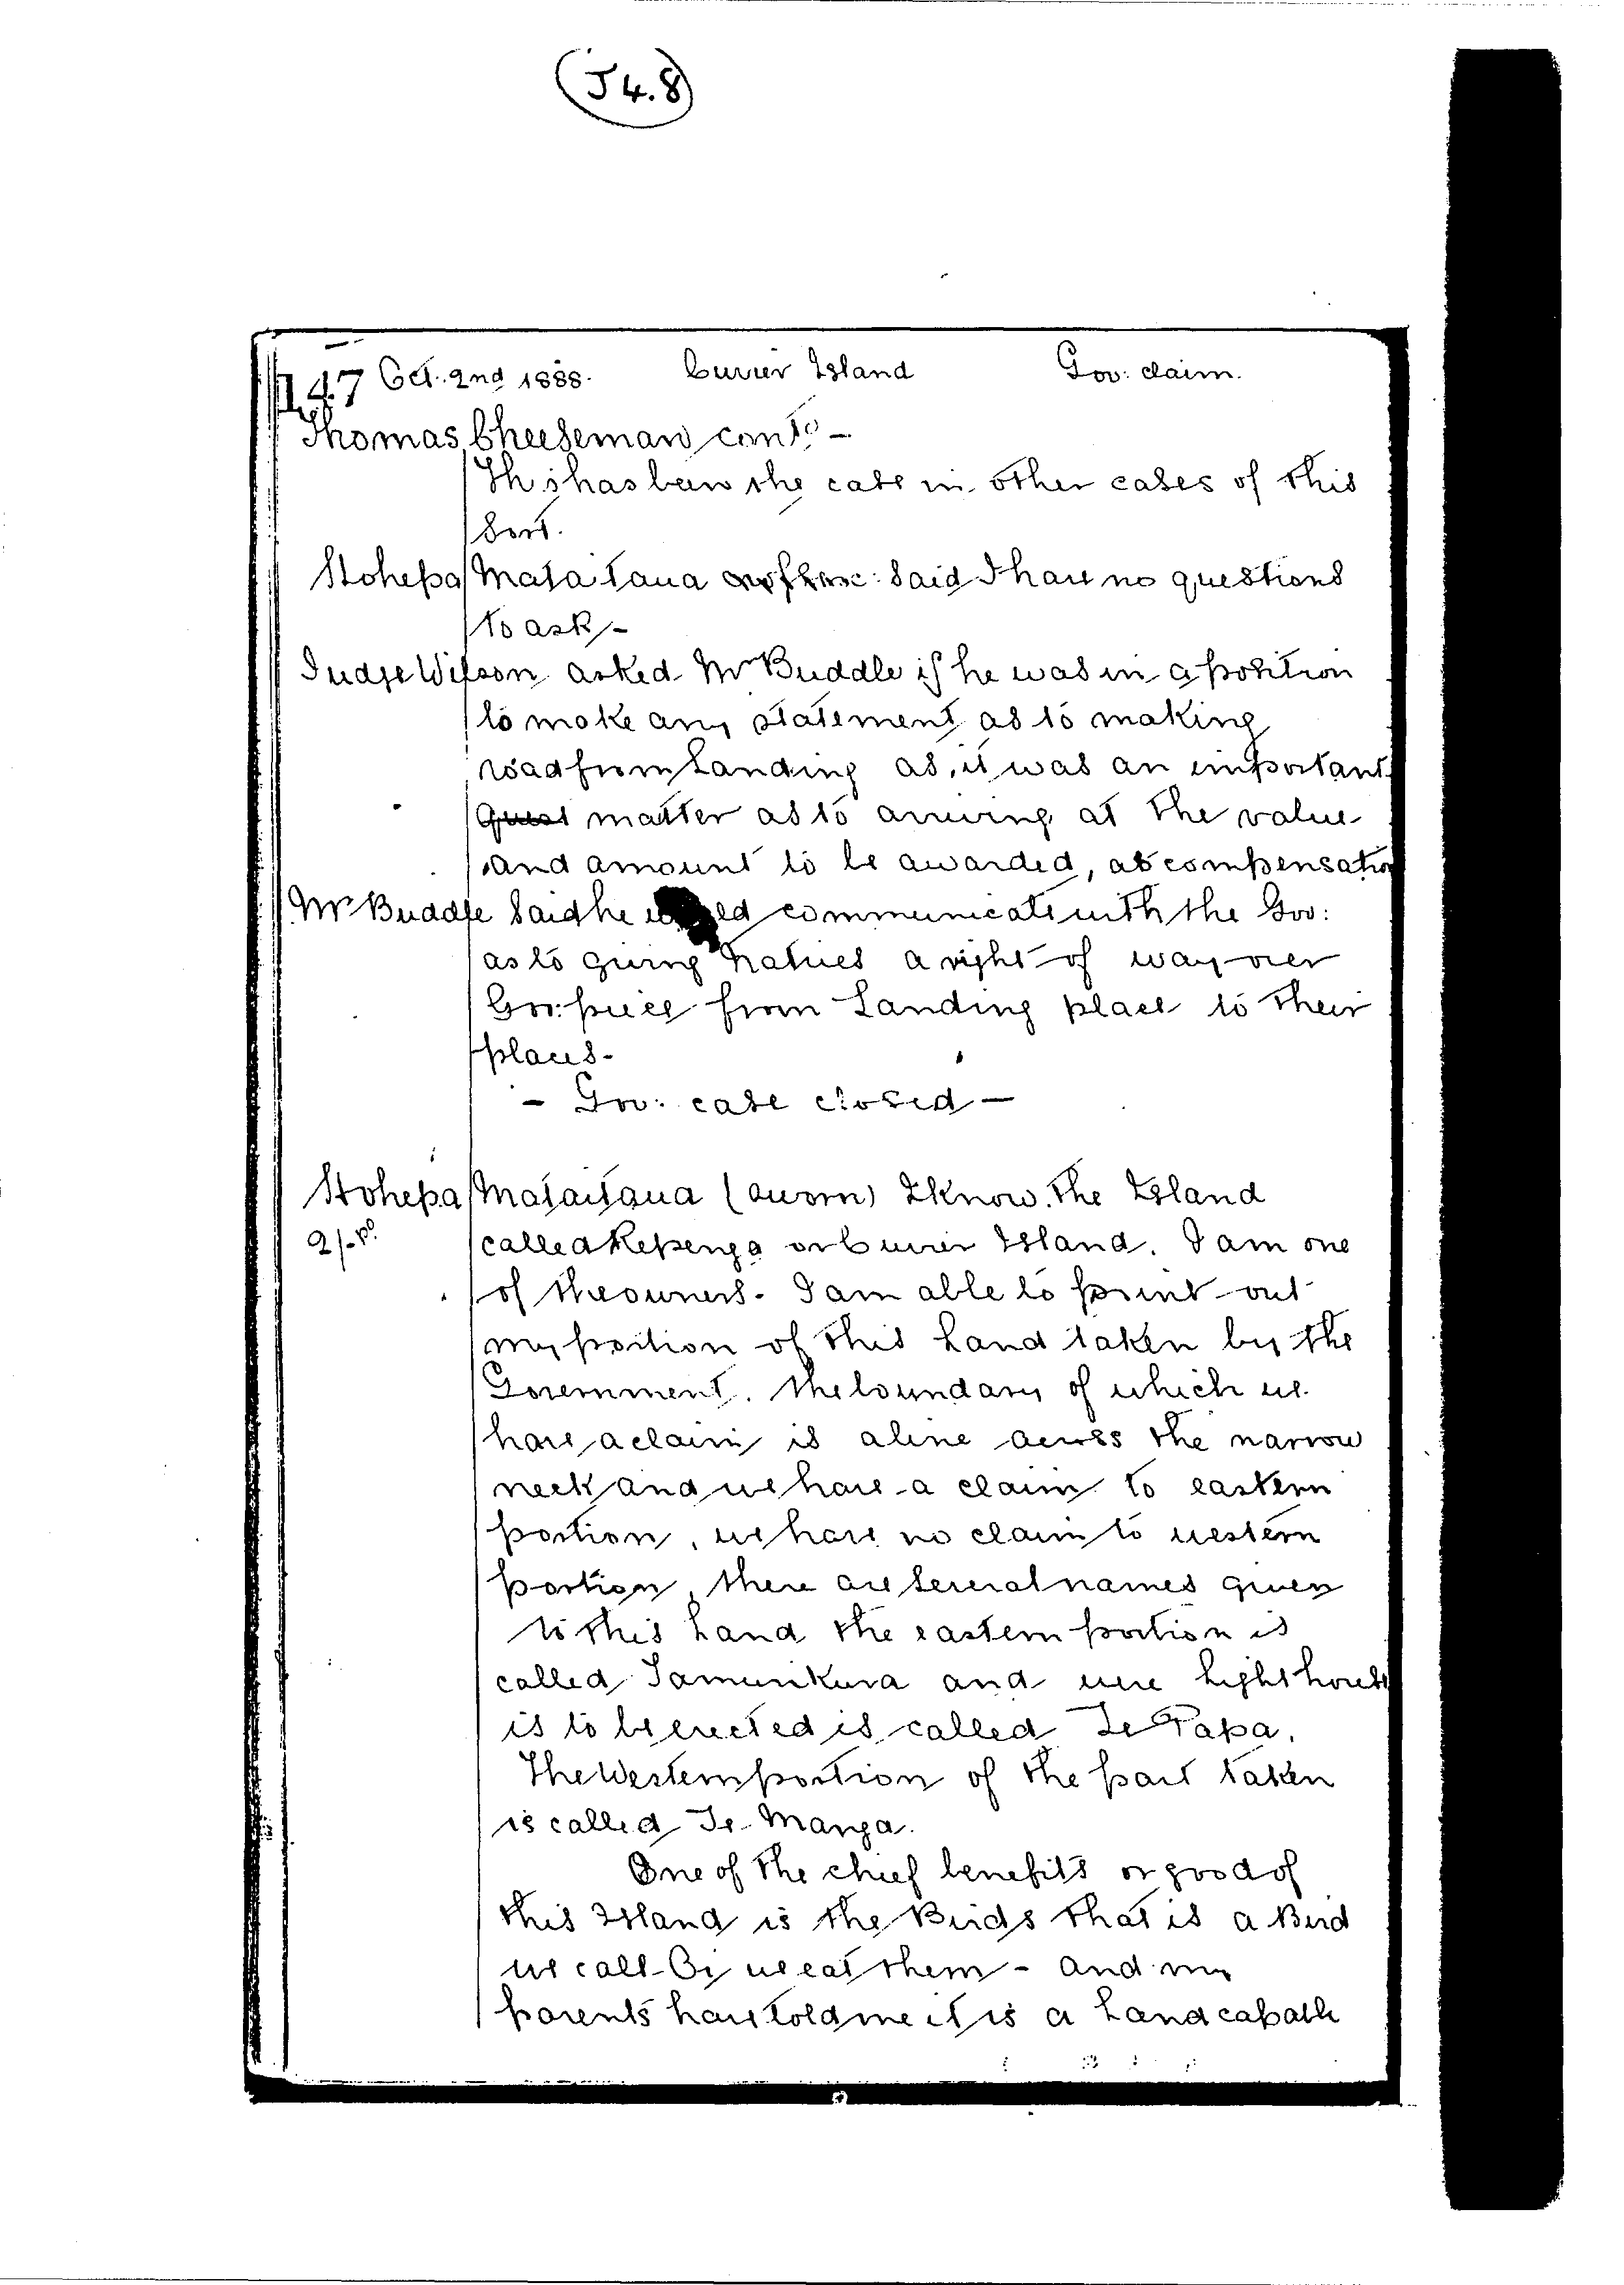 (J 4.8)
147 Oct. 2nd 1888. Cuvier Island Gov: claim.
Thomas Cheeseman contd –
This has been the case in other cases of this
sort.
Hohepa Mataitaua said I have no questions
to ask –
Judge Wilson asked Mr Buddle if he was in a position
to make any statement as to making
road from Landing as it was an important
Quest matter as to arriving at the value
and amount to be awarded, as compensation
Mr Buddle said he would communicate with the Gov:
as to giving Natives a right of way over
Gov: piece from Landing place to their
places –
– Gov: case closed –
Hohepa Mataitaua (sworn) I know the Island
2/- pd called Repenga or Cuvier Island. I am one
of the owners. I am able to point out
my portion of this Land taken by the
Government. The boundary of which we
have a claim is a line across the narrow
neck and we have a claim to eastern
portion, we have no claim to western
portion, there are several names given
to this Land the eastern portion is
called and were light house
is to be erected is called Te Papa.
The Western portion of the part taken
is called Te Manga.
One of the chief benefits or good of
this Island is the Birds that is a Bird
we call Oi we eat them – and my
parents have told me it is a Land capable